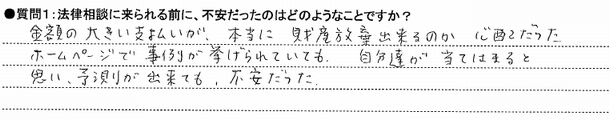 ●質問1:法律相談に来られる前に、不安だったのはどのようなことですか?
金額の大きい支払いが、本当に財産放棄出来るのか 心配でだった
ホームページで事例が挙げられていても、自分達が当てはまると
思い、予測が出来ても、不安だった。